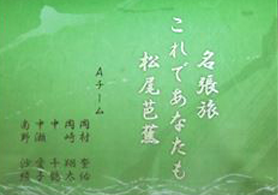 名張旅
これであなたも
松尾芭蕉
Aチーム
岡村
岡崎 翔太
中 千穂
中瀬 愛子
南野